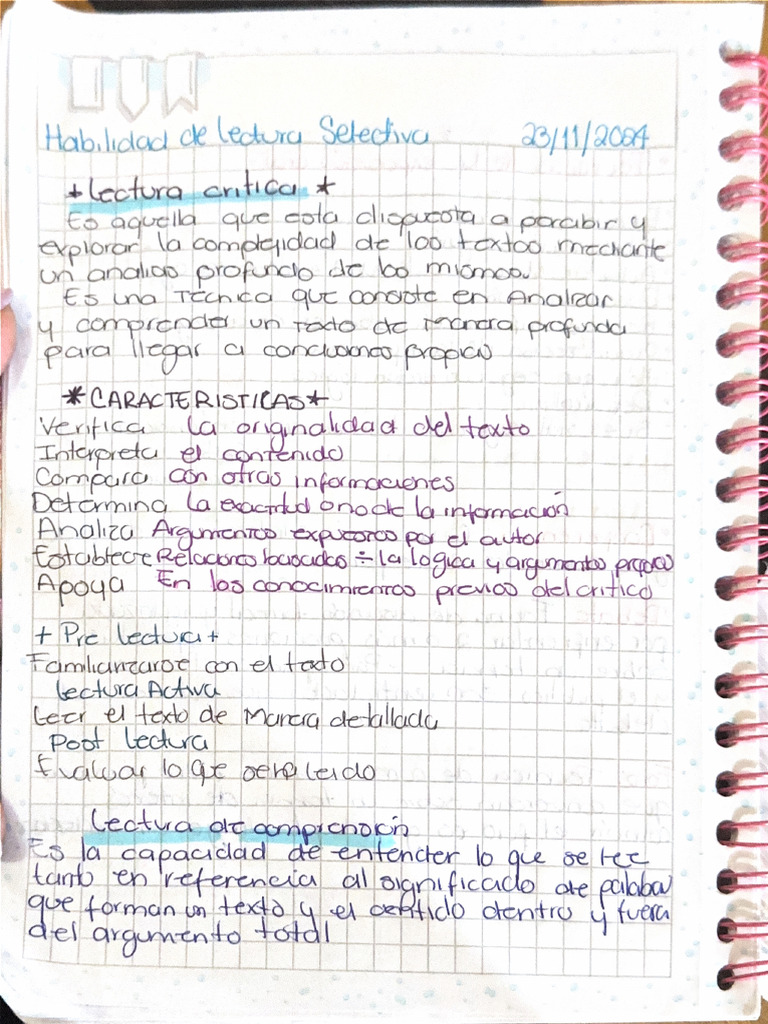 Habilidad de lectura Selectiva 23/11/2024
*Lectura critica *
Es aquella que esta dispuesta a percibir y
explorar la complejidad de los textos mediante
un analisis profundo de los mismos.
Es una Técnica que consiste en Analizar
y comprender un texto de Manera profunda
para llegar a conclusiones propias
*CARACTERISTICAS*
Verifica la originalidad del texto
Interpreta el contenido
Compara con otras informaciones
Determina la exactitud o no de la información
Analiza Argumentos expuestos por el autor
Establece Relaciones basados ÷ la logica y argumentos propios
Apoya En los conocimientos previos del critico
+ Pre lectura +
Familiarizarse con el texto
Lectura Activa
Leer el texto de Manera detallada
Post Lectura
Evaluar lo que se leido
Lectura de comprensión
Es la capacidad de entender lo que se lee
tanto en referencia al significado de palabas
que forman un texto y el sentido dentro y fuera
del argumento total